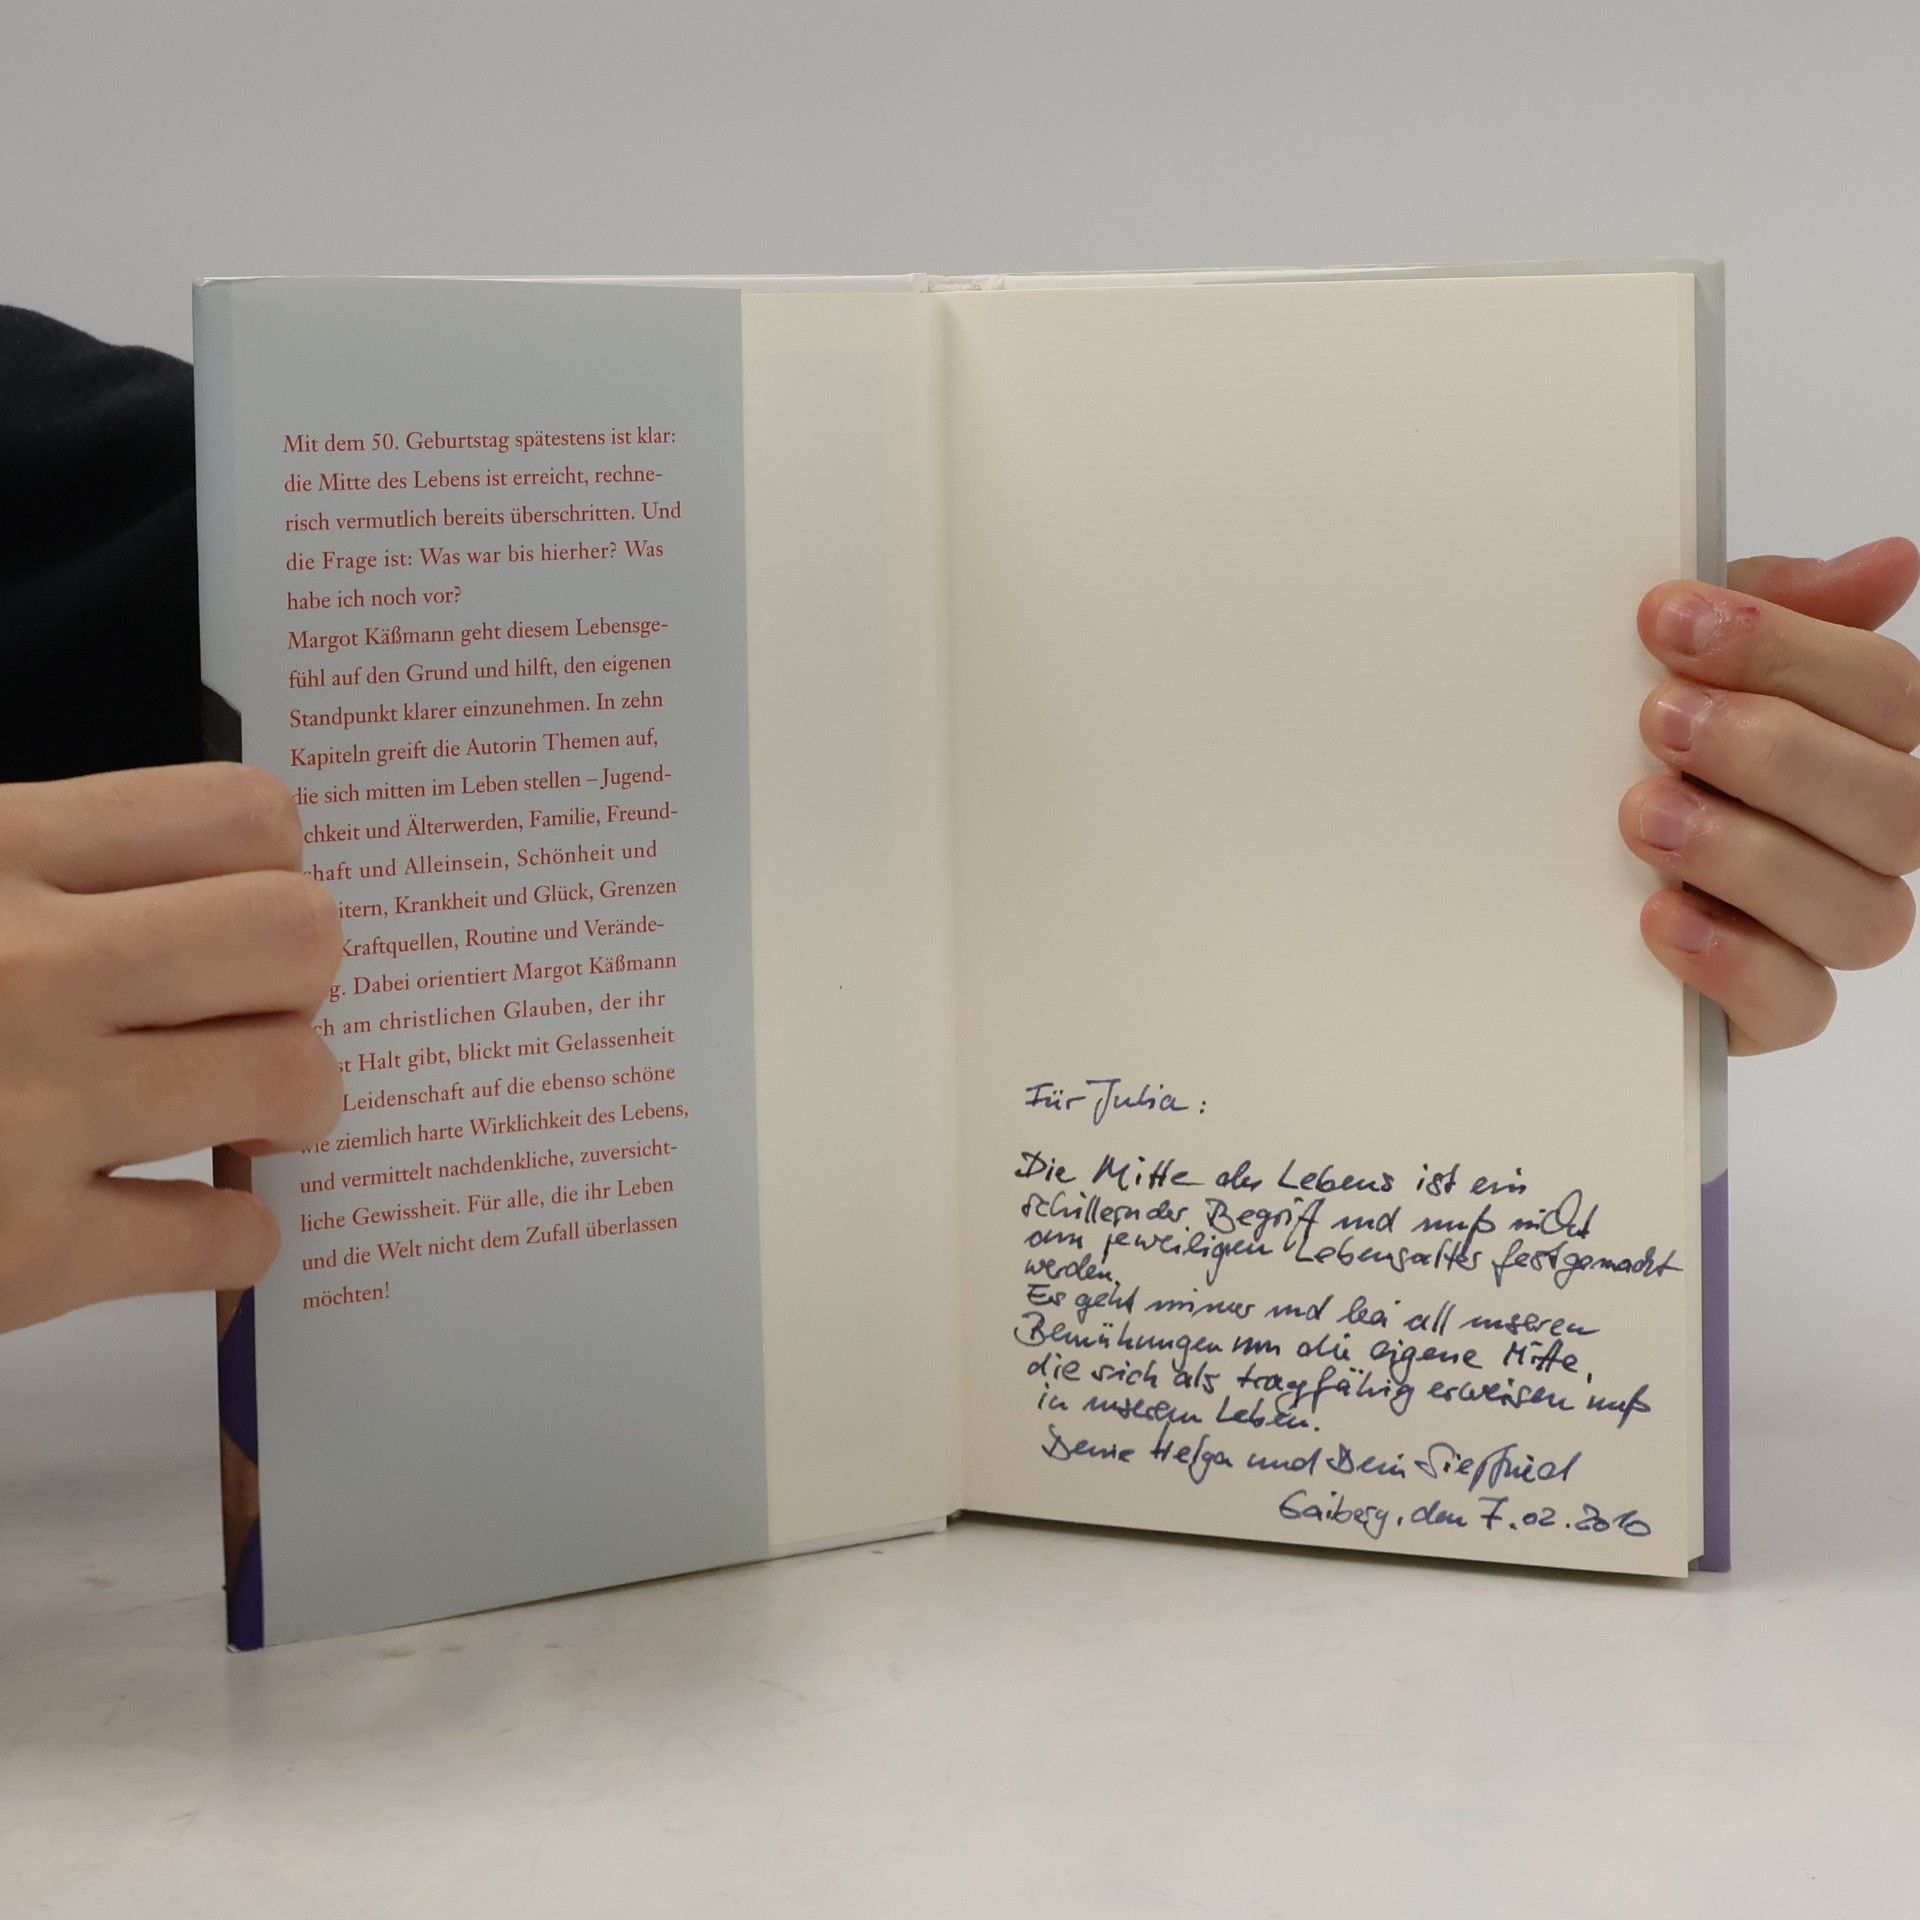 Mit dem 50. Geburtstag spätestens ist klar:
die Mitte des Lebens ist erreicht, rechne-
risch vermutlich bereits überschritten. Und
die Frage ist: Was war bis hierher? Was
habe ich noch vor?
Margot Käßmann geht diesem Lebensge-
fühl auf den Grund und hilft, den eigenen
Standpunkt klarer einzunehmen. In zehn
Kapiteln greift die Autorin Themen auf,
die sich mitten im Leben stellen – Jugend-
chkeit und Älterwerden, Familie, Freund-
chaft und Alleinsein, Schönheit und
itern, Krankheit und Glück, Grenzen
Kraftquellen, Routine und Verände-
g. Dabei orientiert Margot Käßmann
ch am christlichen Glauben, der ihr
st Halt gibt, blickt mit Gelassenheit
Leidenschaft auf die ebenso schöne
wie ziemlich harte Wirklichkeit des Lebens,
und vermittelt nachdenkliche, zuversicht-
liche Gewissheit. Für alle, die ihr Leben
und die Welt nicht dem Zufall überlassen
möchten!
Für Julia:
Die Mitte des Lebens ist ein
schillernder Begriff und muß nicht
am jeweiligen Lebensalter festgemacht
werden.
Es geht immer und bei all unseren
Bemühungen um die eigene Mitte,
die sich als tragfähig erweisen muß
in unserem Leben.
Deine Helga und Dein Siegfried
Gaiberg, den 7.02.2010